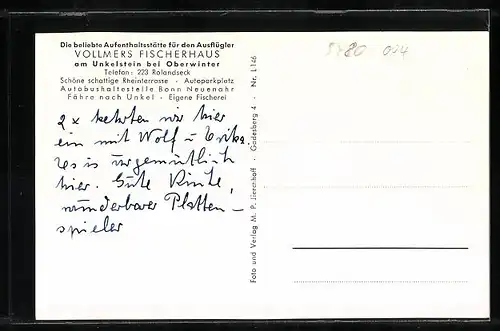 Die beliebte Aufenthaltsstätte für den Ausflügler
VOLLMERS FISCHERHAUS
am Unkelstein bei Oberwinter
Telefon: 223 Rolandseck
Schöne schattige Rheinterrasse · Autoparkplatz
Autobushaltestelle Bonn Neuenahr
Fähre nach Unkel · Eigene Fischerei
2 x kehrten wir hier
ein mit Wolf u Erika.
Es is urgemütlich
hier. Gute Küche,
wunderbarer Platten-
spieler
Foto und Verlag M. P. · Godesberg 4 · Nr. L 146
5480 024